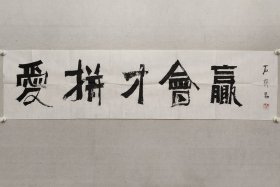 愛拼才會贏